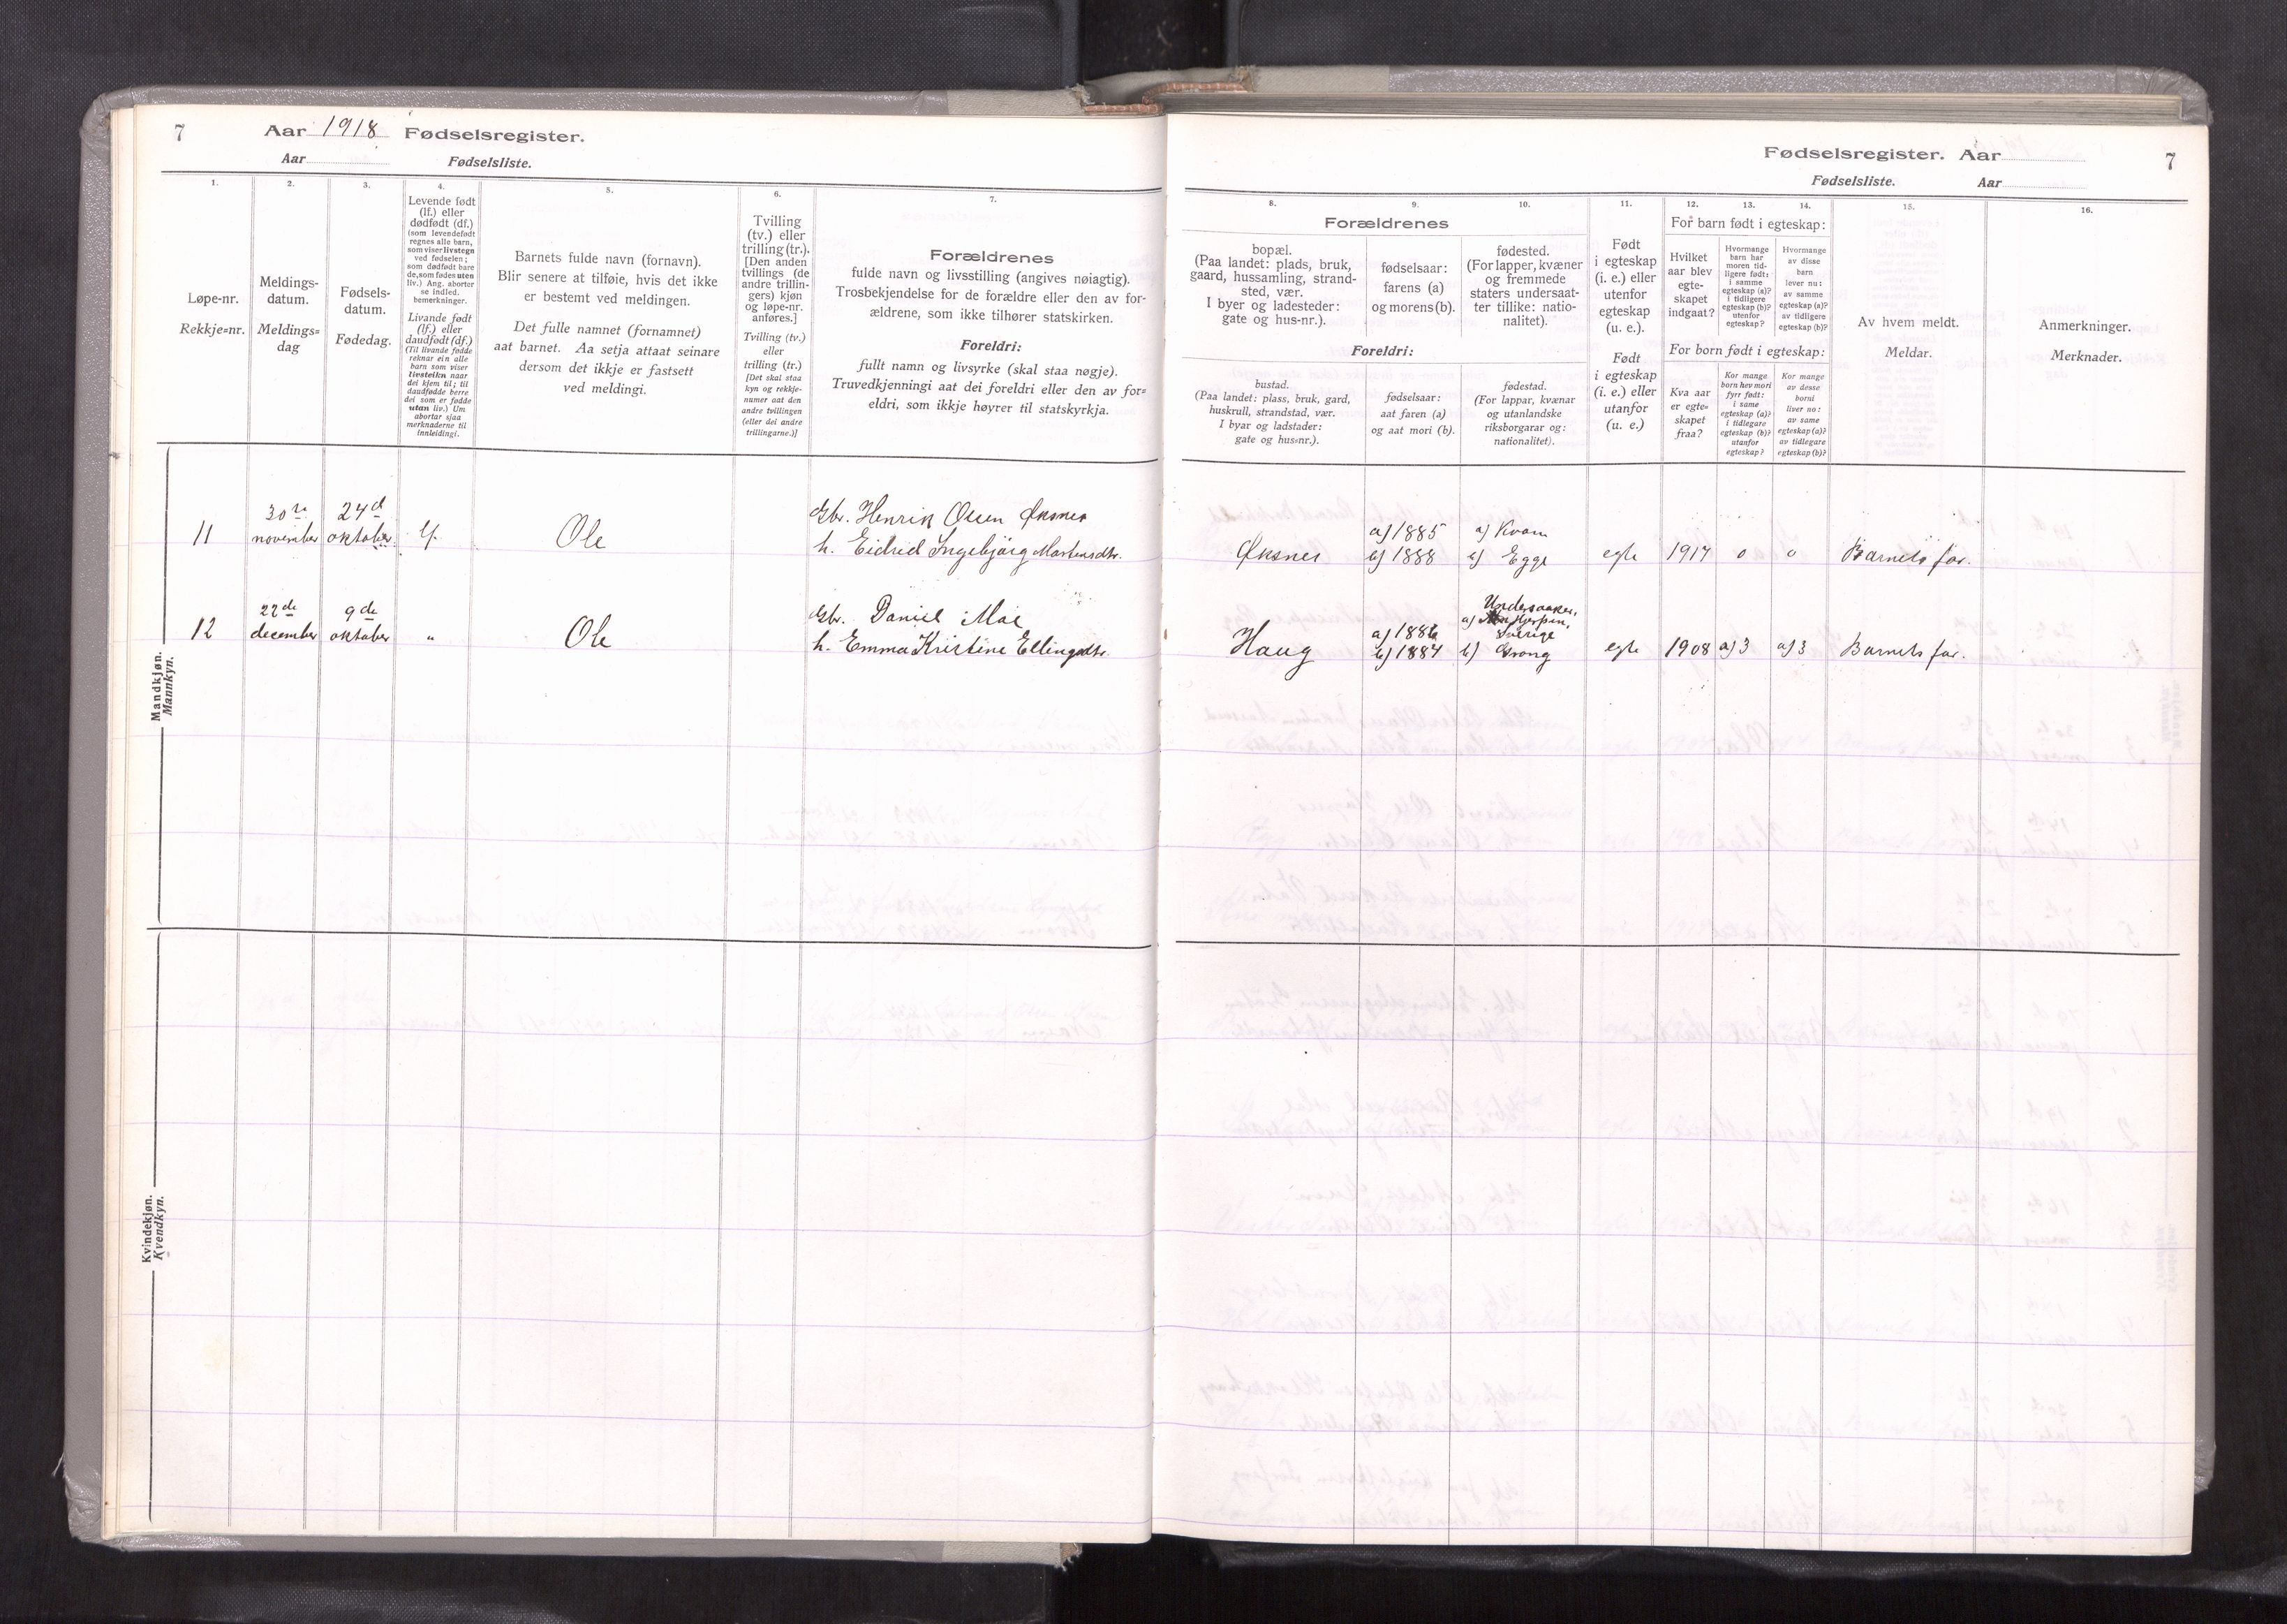 7
Aar 1918 Fødselsregister.
Aar Fødselsliste.
1.
2.
3.
4.
5.
6.
7.
Løpe-nr.
Rekkje=nr.
Meldings-
datum.
Meldings=
dag
Fødsels-
datum.
Fødedag.
Levende født
(lf.) eller
dødfødt (df.)
(som levendefødt
regnes alle barn,
som viser livstegn
ved fødselen;
som dødfødt bare
de, som fødes uten
liv.) Ang. aborter
se indled.
bemerkninger.
Livande født
(lf.) eller
daudfødt (df.)
(Til livande fødde
reknar ein alle
barn som viser
livsteikn naar
dei kjem til; til
daudfødde berre
dei som er fødde
utan liv.) Um
abortar sjaa
merknaderne til
innleidingi.
Barnets fulde navn (fornavn).
Blir senere at tilføie, hvis det ikke
er bestemt ved meldingen.
Det fulle namnet (fornamnet)
aat barnet. Aa setja attaat seinare
dersom det ikkje er fastsett
ved meldingi.
Tvilling
(tv.) eller
trilling (tr.).
[Den anden
tvillings (de
andre trillin-
gers) kjøn
og løpe-nr.
anføres.]
Tvilling (tv.)
eller
trilling (tr.)
[Det skal staa
kyn og rekkje-
numer aat den
andre tvillingen
(eller dei andre
trillingarne.)]
Forældrenes
fulde navn og livsstilling (angives nøiagtig).
Trosbekjendelse for de forældre eller den av for-
ældrene, som ikke tilhører statskirken.
Foreldri:
fullt namn og livsyrke (skal staa nøgje).
Truvedkjenningi aat dei foreldri eller den av for=
eldri, som ikkje høyrer til statskyrkja.
Mandkjøn.
Mannkyn.
11
30te
november
24d
oktober
lf.
Ole
Gbr. Henrik Olsen Øksnes
h. Eidrid Ingebjörg Martensdtr.
12
22de
december
9de
oktober
"
Ole
Gbr. Daniel Moe
h. Emma Kristine Ellingsdtr.
Kvindekjøn.
Kvendkyn.
Fødselsregister. Aar
7
Fødselsliste. Aar
8.
9.
10.
11.
12.
13.
14.
15.
16.
Forældrenes
bopæl.
(Paa landet: plads, bruk,
gaard, hussamling, strand-
sted, vær.
I byer og ladesteder:
gate og hus-nr.).
fødselsaar:
farens (a)
og morens (b).
fødested.
(For lapper, kvæner
og fremmede
staters undersaat-
ter tillike: natio-
nalitet).
Foreldri:
bustad.
(Paa landet: plass, bruk, gard,
huskrull, strandstad, vær.
I byar og ladstader:
gate og hus=nr.).
fødselsaar:
aat faren (a)
og aat mori (b).
fødestad.
(For lappar, kvænar
og utanlandske
riksborgarar og:
nationalitet).
Født
i egteskap
(i. e.) eller
utenfor
egteskap
(u. e.).
Født
i egteskap
(i. e.) eller
utanfor
egteskap
(u. e.)
For barn født i egteskap:
Hvilket
aar blev
egte-
skapet
indgaat?
Hvormange
barn har
moren tid-
ligere født:
i samme
egteskap (a)?
i tidligere
egteskap (b)?
utenfor
egteskap?
Hvormange
av disse
barn
lever nu:
av samme
egteskap (a)?
av tidligere
egteskap (b)?
For born født i egteskap:
Kva aar
er egte=
skapet
fraa?
Kor mange
born hev mori
fyrr født:
i same
egteskap (a)?
i tidlegare
egteskap (b)?
utanfor
egteskap?
Kor mange
av desse
borni
liver no:
av same
egteskap (a)?
av tidlegare
egteskap (b)?
Av hvem meldt.
Meldar.
Anmerkninger.
Merknader.
Øksnes
a) 1885
b) 1888
a) Kvam
b) Egge
egte
1917
0
0
Barnets far.
Haug
a) 1886
b) 1884
Undersaaker,
a)
Sverige
b) Grong
egte
1908
a) 3
a) 3
Barnets far.